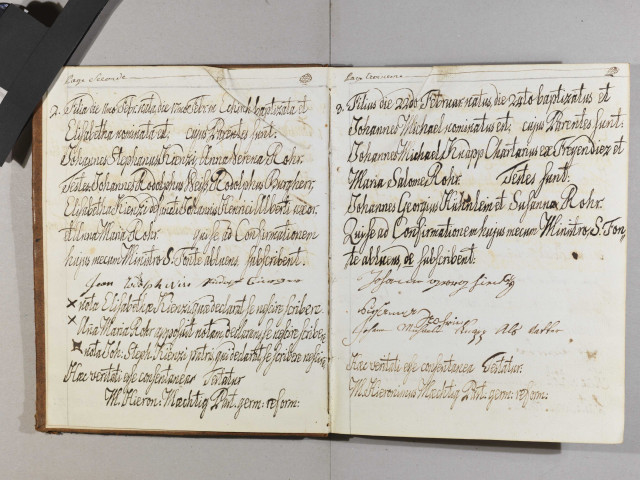 Page Seconde
2. Filia die
nata, die baptizata et
Elisabetha nominata est: cujus Parentes sunt:
Johannes Stephanus Kienzi, Anna Verena Rohr.
Testes Johannes Rodolphus Weiss, Rodolphus Burgherr,
Elisabetha Kienzi Johannis Henrici Alberti uxor.
et Anna Maria Rohr quise ad Confirmationem
hujus mecum Ministro S. Fonte abluens subscribent.
nota Elisabethæ Kienzi quæ declarat se nescire scribere
Ana Maria Rohr apposuit notam declarans se nescire scribere
nota Joh: Steph: Kienzi patris qui declarat se scribere nescire
Hæc veritati esse consentanea Testatur
M. Hieron: Mæchtig Past. germ: reform:
Page
3. Filius die 22do Februar natus, die 24to baptizatus et
Johannes Michael nominatus est: cujus Parentes sunt:
Johannes Michael Knapp Chartarius ex Freyendiez et
Maria Salome Rohr. Testes sunt:
Johannes Georgius et Susanna Rohr.
Quise ad Confirmationem hujus mecum Ministro, S. Fon-
te abluens, subscribent:
Susanna Rohrin
Johan Michael Knapp Als Vatter
Hæc veritati esse consentanea Testatur.
M. Hieronimus Mæchtig Past. germ: reform: